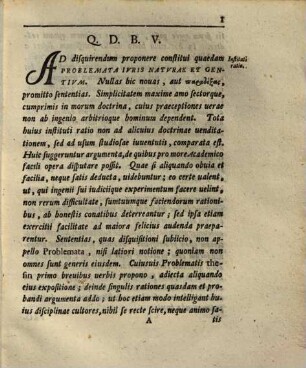 1
Q. D. B. V.
AD disquirendum proponere constitui quaedam
PROBLEMATA IVRIS NATVRAE ET GEN-
TIVM. Nullas hic nouas, aut παραδόξας,
promitto sententias. Simplicitatem maxime amo sectorque,
cumprimis in morum doctrina, cuius praeceptiones uerae
non ab ingenio arbitrioque hominum dependent. Tota
huius instituti ratio non ad alicuius doctrinae uendita-
tionem, sed ad usum studiosae iuuentutis, comparata est.
Huic suggeruntur argumenta, de quibus pro more Academico
facili opera disputare possit. Quae si aliquando obuia et
facilia, neque satis deducta, uidebuntur; eo certe ualent,
ut, qui ingenii sui iudiciique experimentum facere uelint,
non rerum difficultate, sumtuumque faciendorum rationi-
bus, ab honestis conatibus deterreantur; sed ipsa etiam
exercitii facilitate ad maiora felicius audenda praepa-
rentur. Sententias, quas disquisitioni subiicio, non ap-
pello Problemata, nisi latiori notione; quoniam non
omnes sunt generis eiusdem. Cuiusuis Problematis the-
sin primo breuibus uerbis propono, adiecta aliquando
eius expositione; deinde singulis rationes quasdam et pro-
bandi argumenta addo; ut hoc etiam modo intelligant hu-
ius disciplinae cultores, nihil se recte scire, neque animo sa-
A
tis
Instituti
ratio.